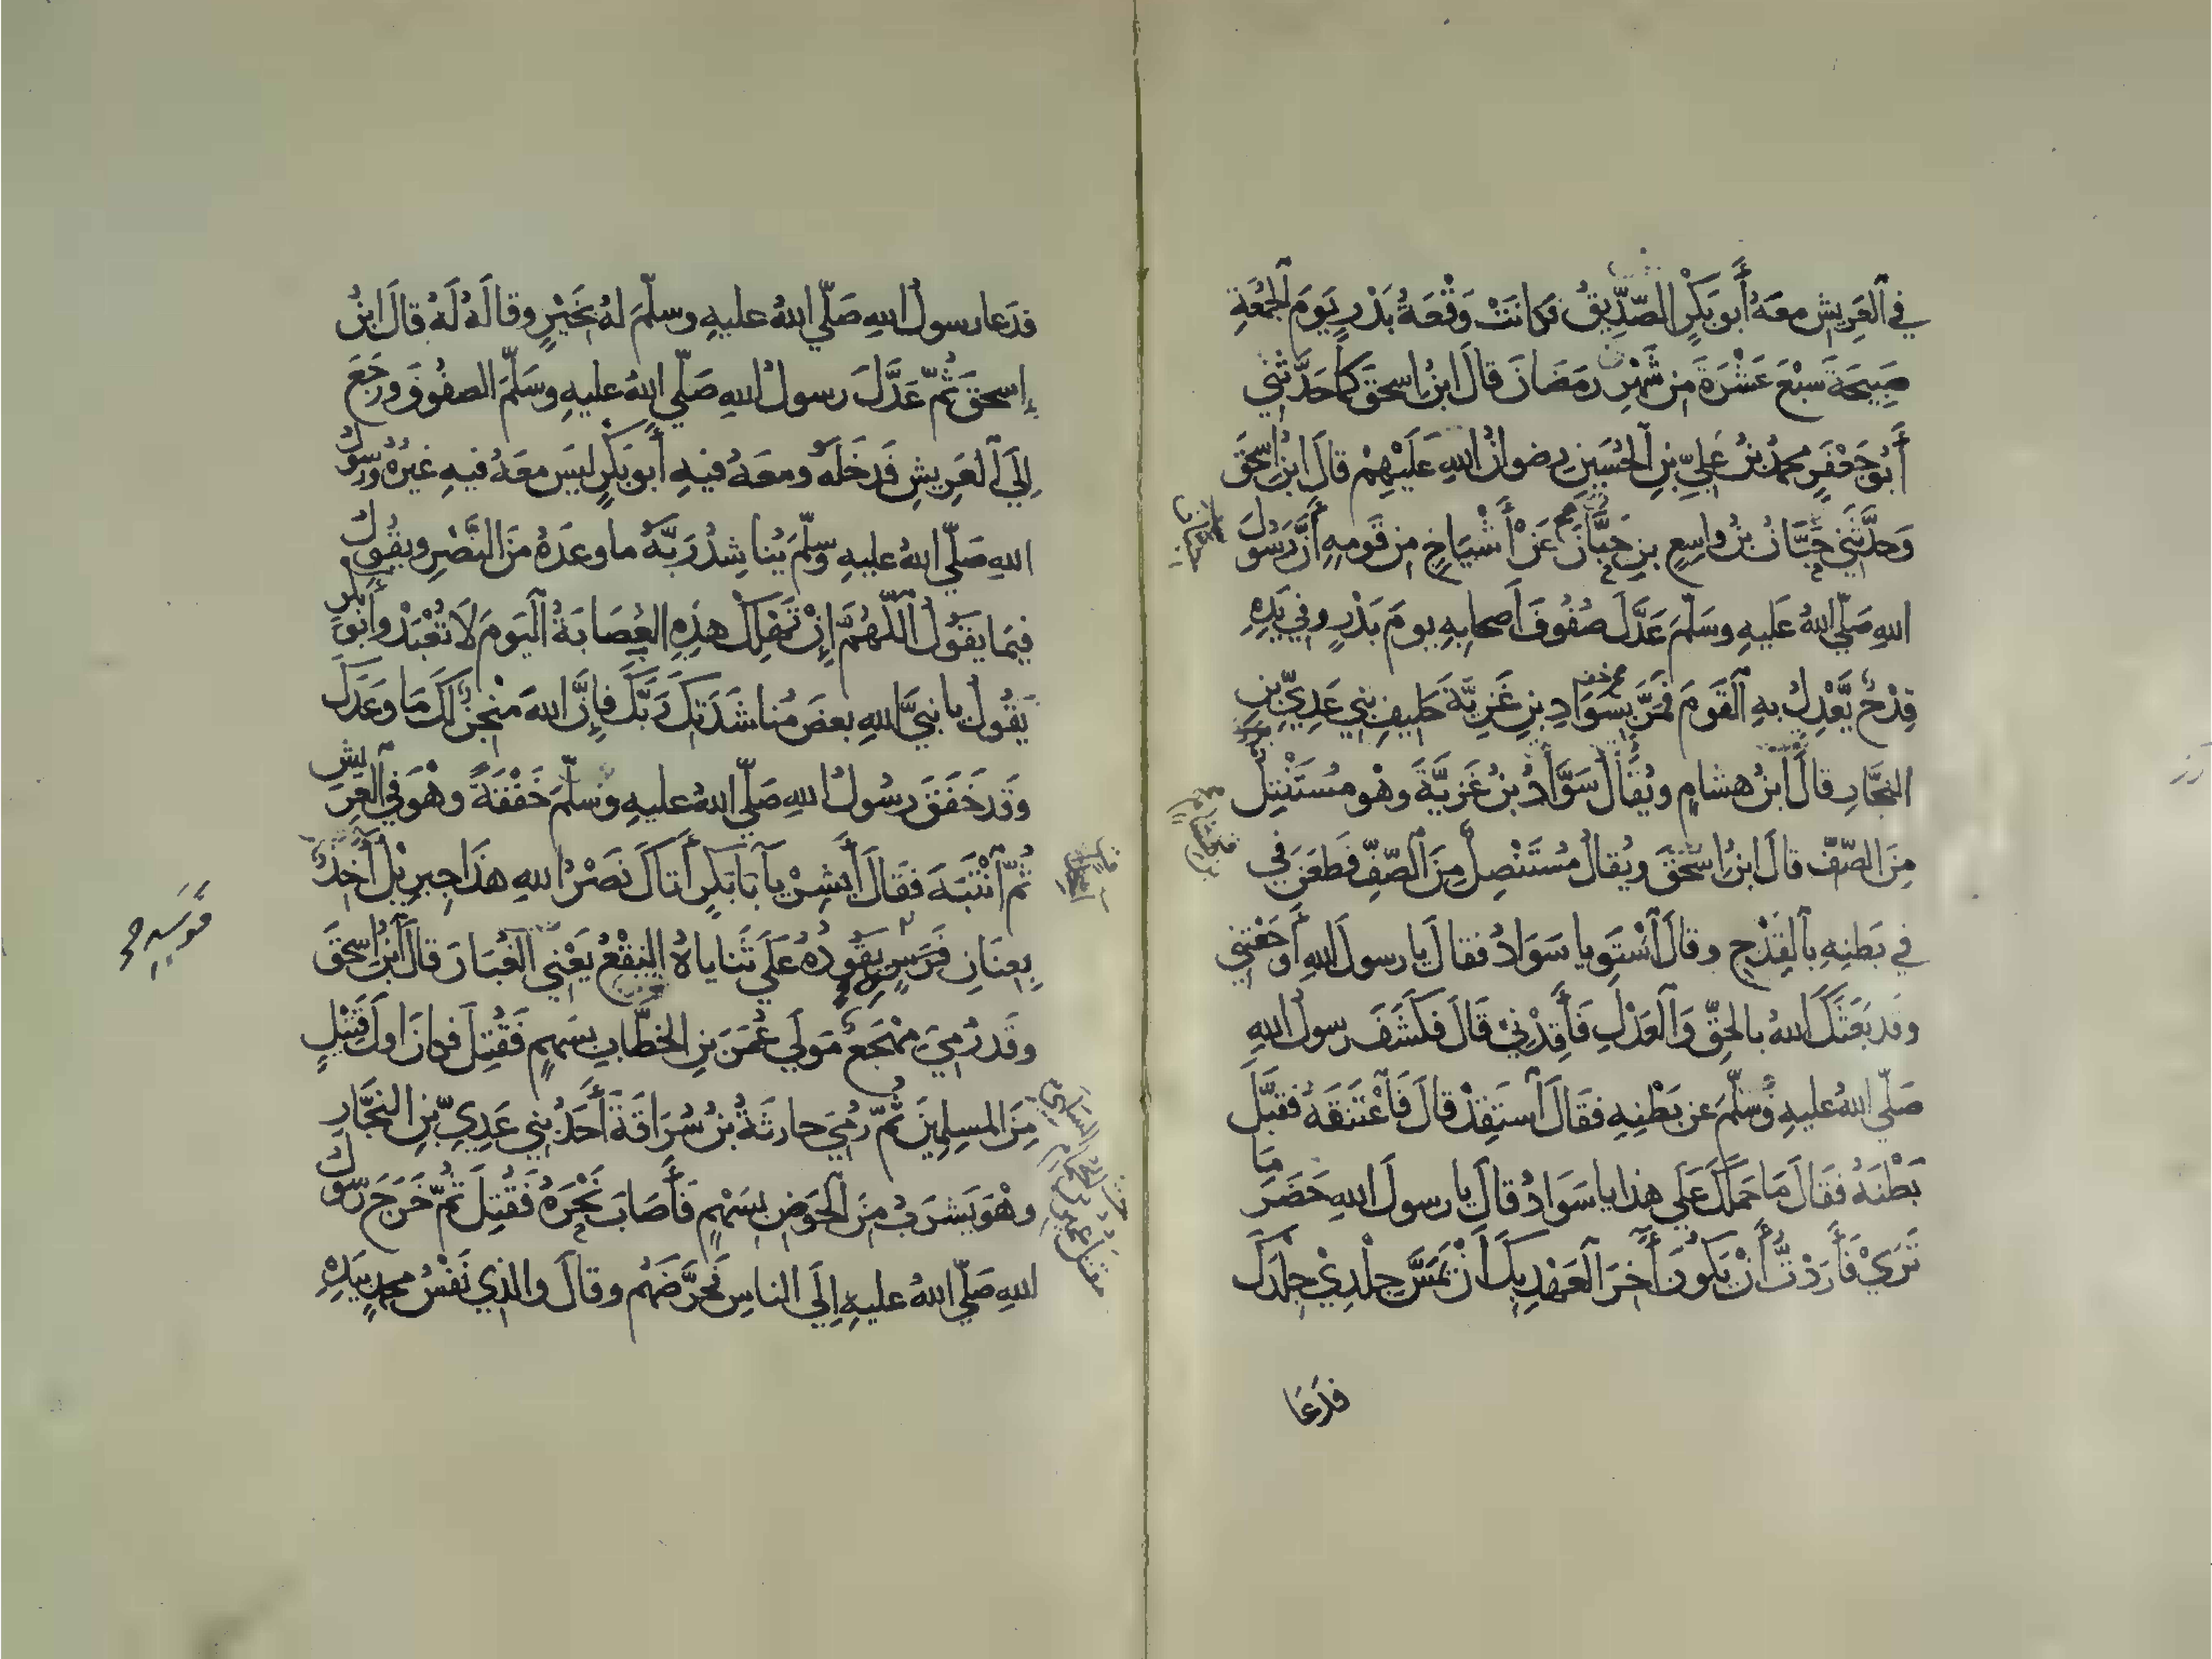 في ٱلعَرِيشِ معَهُ أَبو بَكرٍ الصِّدِّيقُ فكانَتْ وَقْعَةُ بَدْرٍ يَومَ ٱلجُمُعَةِ
صَبِيحَةَ سَبْعَ عَشْرَةَ مِن شَهْرِ رمَضَانَ قالَ ابنُ اسحقَ كما حَدَّثَني
أَبُو جَعْفَرٍ محمدُ بنُ عَلِيِّ بنِ ٱلحُسَينِ رضوانُ اللهِ عَلَيْهِمْ قالَ ابنُ إسحقَ
وَحدَّثَني حَبَّانُ بنُ واسِعِ بنِ حَبَّانَ عَنْ أَشْيَاخٍ مِن قَومِهِ أَنَّ رسُولَ
اللهِ صَلّي اللهُ عَليهِ وسَلّمَ عَدَّلَ صُفُوفَ أَصحابِهِ يومَ بَدْرٍ وفي يَدِهِ
قِدْحٌ يُعَدِّلُ بهِ ٱلقَومَ فمَرَّ بِسَوَادِ بنِ غَزِيَّةَ حَليفِ بَني عَدِيِّ بنِ
النجّارِ قالَ ابنُ هشامٍ ويُقالُ سَوَّادُ بنُ غَزِيَّةَ وهْو مُسْتَنْتِلٌ
مِنَ الصّفِّ قالَ ابنُ إسحقَ ويُقالُ مُسْتَنْصِلٌ مِنَ ٱلصّفِّ فطعَنَ في
في بَطنِهِ بٱلقِدْحِ وقالَ ٱسْتَوِ يا سَوَادُ فقالَ يا رسولَ اللهِ أَوجَعْتَني
وقد بَعَثَكَ اللهُ بالحقِّ وَٱلعَدْلِ فَأَقِدْنِي قَالَ فكَشَفَ رسولُ اللهِ
صَلّي اللهُ عليهِ وسَلّمَ عن بَطْنِهِ فقَالَ ٱستَقِدْ قالَ فَٱعْتَنَقَهُ فقَبَّلَ
بَطْنَهُ فقَالَ مَا حَمَلَكَ عَلَي هذا يا سَوَادُ قالَ يا رسولَ اللهِ حَضَرَ مَا
تَرَيْ فَأَرَدْتُ أَنْ يَكُونَ آخِرَ ٱلعَهْدِ بِكَ أَنْ يَمَسَّ جِلْدِيْ جِلْدَكَ
فدَعَا
فدَعا رسولُ اللهِ صَلّي اللهُ عليهِ وسلّمَ لهُ بخَيْرٍ وقالَهُ لَهُ قالَ ابنُ
إسحقَ ثُمّ عَدَّلَ رسولُ اللهِ صَلّي اللهُ عليهِ وسَلّمَ الصفُوفَ ورَجَعَ
إلَي ٱلعَرِيشِ فَدخَلَهُ ومعَهُ فيهِ أَبو بَكرٍ ليسَ معَهُ فيهِ غيرُهُ ورسُولُ
اللهِ صَلّي اللهُ عليهِ وسلّمَ يُناشِدُ رَبَّهُ ما وعَدَهُ منَ النَّصْرِ ويقُولُ
فيمَا يقَوُلُ ٱللّهُمَّ إِنْ تَهْلِكْ هذِهِ العِصَابَةُ ٱليَومَ لَا تُعْبَدْ وأَبُو بكرٍ
يقُولُ يا نبيَّ اللهِ بعضَ مُناشَدَتِكَ رَبَّكَ فإِنَّ اللهَ مُنْجِزٌ لكَ مَا وعَدَكَ
وقَد خَفَقَ رسُولُ اللهِ صَلّي اللهُ عليهِ وسَلّمَ خَفْقَةً وهْوَ في ٱلعَرِيشِ
ثُمّ ٱنْتَبَهَ فقَالَ أَبشِرْ يآ أَبَا بَكرٍ أَتاكَ نَصْرُ اللهِ هذَا جبرِيلُ آخِذٌ
بِعِنَانِ فَرَسٍ يَقُودُهُ عَلَي ثَناياهُ النَّقْعُ يَعْنِي ٱلغُبَارَ قالَ ٱبنُ إسحقَ
وقَد رُمِيَ مِهْجَعٌ مَولَي عُمَرَ بنِ الخطَّابِ بسَهمٍ فَقُتِلَ فكانَ اولَ قَتِيلٍ
مِنَ المسلِمِينَ ثُمّ رُمِيَ حارثَةُ بنُ سُرَاقَةَ أَحَدُ بَني عَدِيِّ بنِ النجَّارِ
وهْوَ يَشرَبُ مِنَ ٱلحَوضِ بسَهْمٍ فَأَصَابَ نَحْرَهُ فَقُتِلَ ثُمّ خَرَجَ رسُولُ
اللهِ صَلّي اللهُ عليهِ إلَي الناسِ فحَرَّضَهُم وقالَ والذي نَفْسُ محمدٍ بيَدِهِ